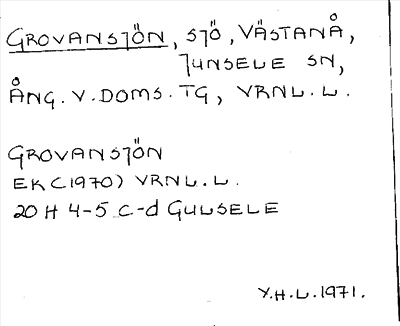 GROVANSJÖN, SJÖ, VÄSTANÅ,
JUNSELE SN,
ÅNG. V. DOMS. TG, VRNL. L.
GROVANSJÖN
EK (1970) VRNL. L.
20 H 4-5 C-d GULSELE
Y.H.L. 1971.